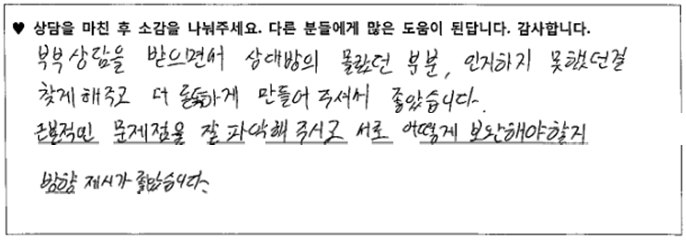 ♥ 상담을 마친 후 소감을 나눠주세요. 다른 분들에게 많은 도움이 된답니다. 감사합니다.
부부상담을 받으면서 상대방의 몰랐던 부분, 인지하지 못했던걸
찾게해주고 더 돈독하게 만들어 주셔서 좋았습니다.
근본적인 문제점을 잘 파악해 주시고 서로 어떻게 보완해야할지
방향 제시가 좋았습니다.